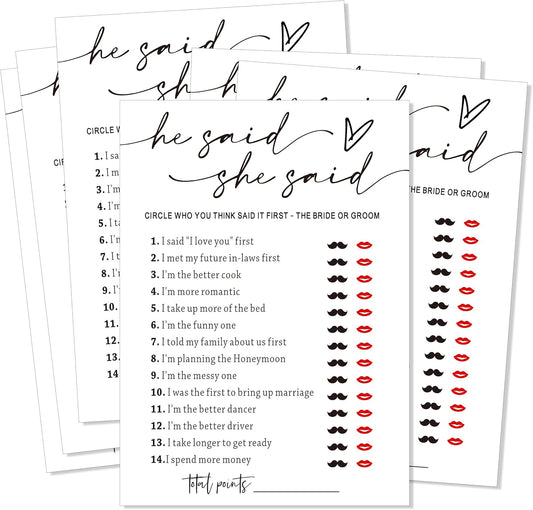 he said
she said
CIRCLE WHO YOU THINK SAID IT FIRST - THE BRIDE OR GROOM
1. I said "I love you" first
2. I met my future in-laws first
3. I'm the better cook
4. I'm more romantic
5. I take up more of the bed
6. I'm the funny one
7. I told my family about us first
8. I'm planning the Honeymoon
9. I'm the messy one
10. I was the first to bring up marriage
11. I'm the better dancer
12. I'm the better driver
13. I take longer to get ready
14.I spend more money
total points
he said
sh
CIRCLE WHO
1. I sa
2. I m
3. I'm
4. I'm
5. I ta
6. I'm
7. I t
8. I'm
9. I'm
10. I
11. I
12. I
13. I
14. I
said
THE BRIDE OR GROOM
he
h
C